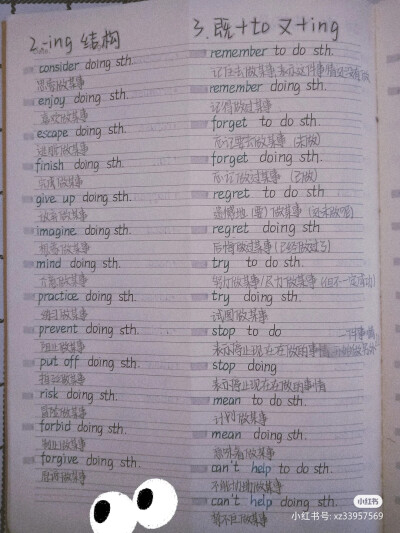 2. -ing 结构
consider doing sth.
思考做某事
enjoy doing sth.
喜欢做某事
escape doing sth.
逃避做某事
finish doing sth.
完成做某事
give up doing sth.
放弃做某事
imagine doing sth.
想象做某事
mind doing sth.
介意做某事
practice doing sth.
练习做某事
prevent doing sth.
阻止做某事
put off doing sth.
推迟做某事
risk doing sth.
冒险做某事
forbid doing sth.
禁止做某事
forgive doing sth.
原谅做某事
3. 既+to 又+ing
remember to do sth.
remember doing sth.
记得做过某事
forget to do sth.
忘记要去做某事 (未做)
forget doing sth.
忘记做过某事 (已做)
regret to do sth
遗憾地 (要) 做某事
regret doing sth
后悔做过某事 (已经做过了)
try to do sth.
努力做某事/尽力做某事 (但不一定成功)
try doing sth.
试图做某事
stop to do
stop doing
表示停止现在在做的事情
mean to do sth.
计划做某事
mean doing sth.
意味着做某事
can't help to do sth.
不能帮助做某事
can't help doing sth.
禁不住做某事
小红书
小红书号: xz33957569